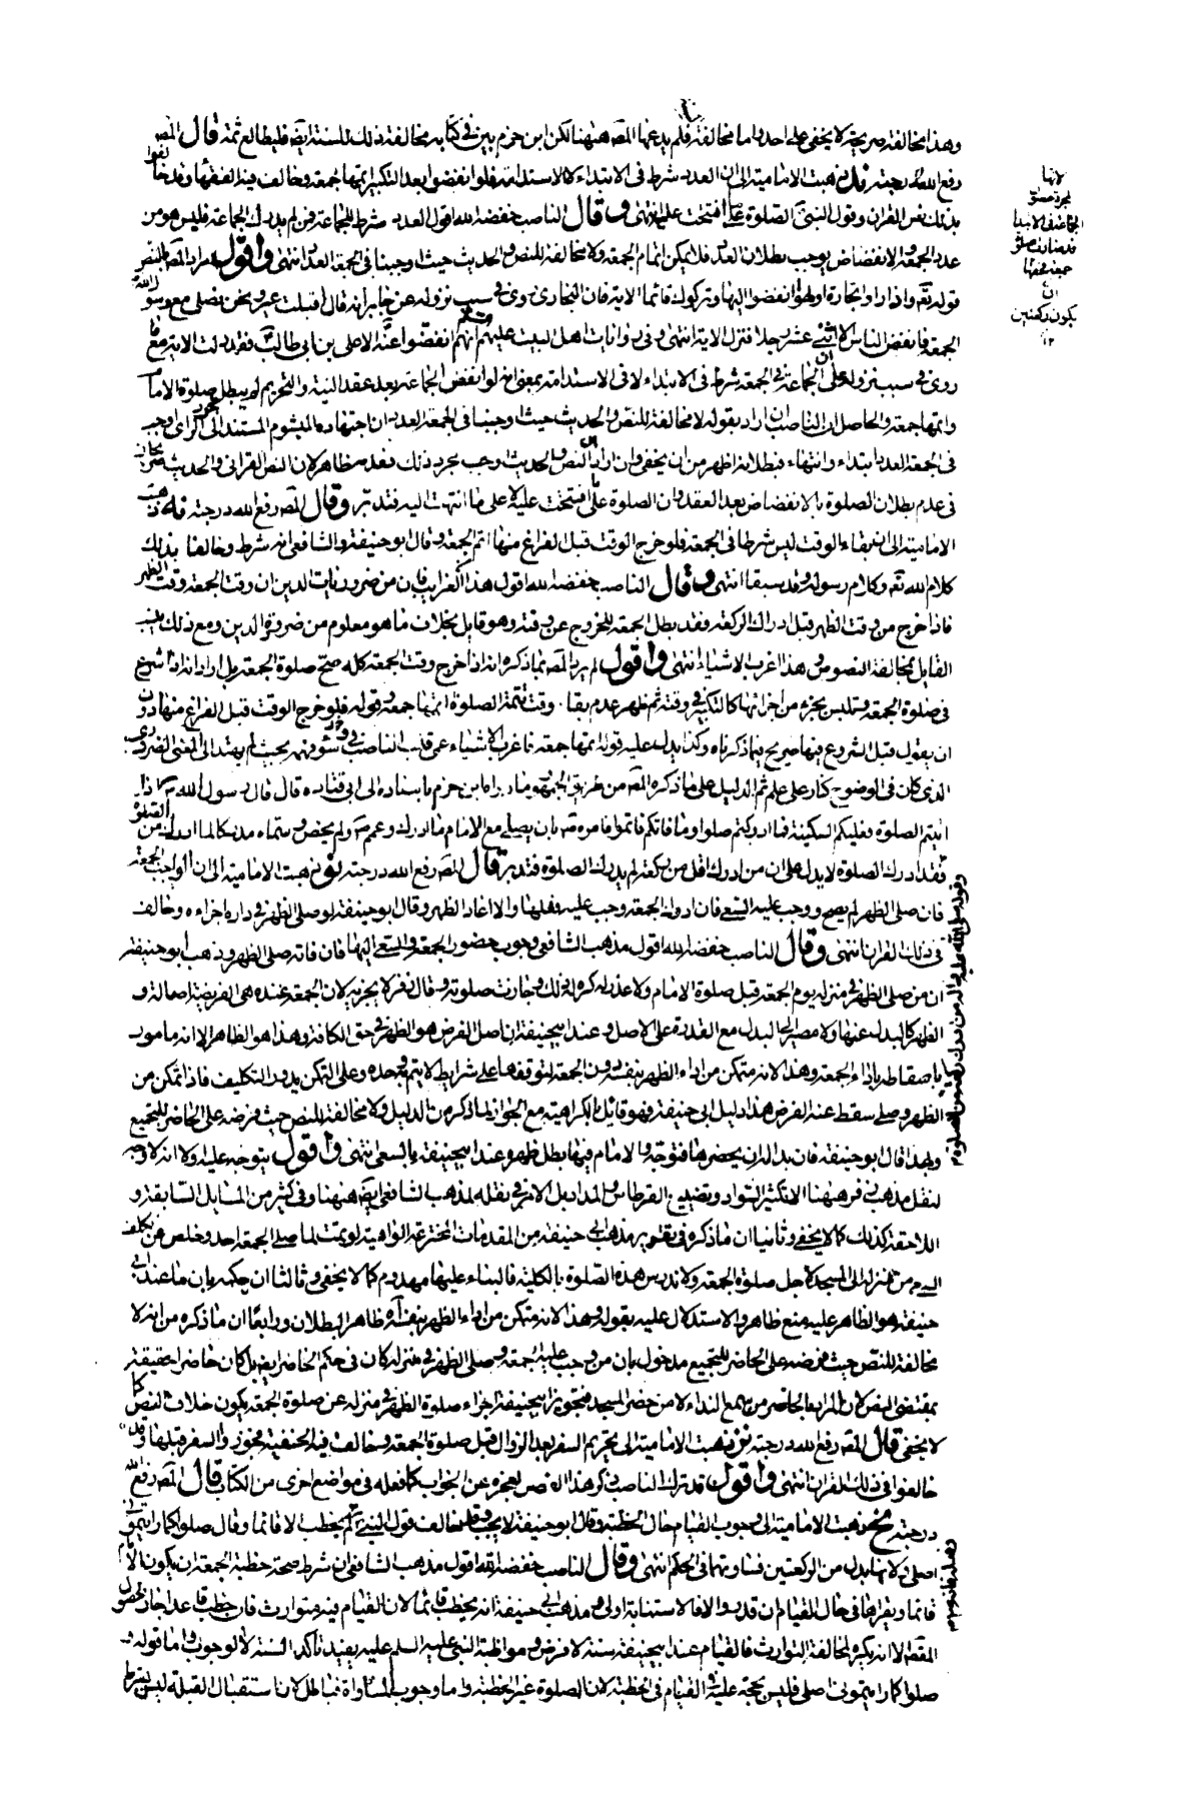 وهذا مخالفة صريحة لا يخفى على احد واما مخالفة فلم يدعها المصـ ههنا لكن ابن حزم بين في كتابه مخالفة ذلك للسنة ايضـ فليطالع ثمة قال المصـ
رفع الله درجته ذهبت الامامية الى ان العدد شرط في الابتداء لا الاستدامة فلو انفضوا بعد التكبير اتمها جمعة وخالف فيه الفقهاء وقد خالفوا
بذلك نص القران وقول النبي الصلوة على ما افتتحت عليه انتهى وقال الناصب خفضه الله اقول العدد شرط للجماعة فمن لم يدرك الجماعة فليس هو من
عدد الجمعة والانفضاض يوجب بطلان العدد فلا يمكن اتمام الجمعة ولا مخالفة للنص والحديث حيث اوجبنا في الجمعة العدد انتهى واقول مراد المصـ بالنص
قوله تعـ واذا راوا تجارة او لهوا انفضوا اليها وتركوك قائما الاية فان البخاري روى في سبب نزوله عن جابر انه قال اقبلت عير ونحن نصلي مع رسول الله
الجمعة فانفض الناس الا اثنى عشر رجلا فنزل الاية انتهى وفي روايات اهل البيت عليهم انهم انفضوا عنه الا علي بن ابي طالب فقد دلت الاية مع ما
روى في سبب نزوله على ان الجماعة في الجمعة شرط في الابتداء لا في الاستدامة بمعنى انه لو انفض الجماعة بعد عقد النية والتحريم لم يبطل صلوة الامام
واتمها جمعة والحاصل ان الناصب ان اراد بقوله لا مخالفة للنص والحديث حيث اوجبنا في الجمعة العدد ان اجتهاده الميشوم المستند الى الراى اوجب
في الجمعة العدد ابتداء وانتهاء فبطلانه اظهر من ان يخفى وان اراد ان النص والحديث وجب بجرد ذلك فعدمه ظاهر لان النص القراني والحديث صريحان
في عدم بطلان الصلوة بالانفضاض بعد العقد وان الصلوة على ما افتتحت عليه لا على ما انتهت اليه فتدبر وقال المصـ رفع الله درجته ذهبت
الامامية الى ان بقاء الوقت ليس شرطا في الجمعة فلو خرج الوقت قبل الفراغ منها اتم الجمعة وقال ابو حنيفة والشافعي انه شرط وخالفا بذلك
كلام الله تعـ وكلام رسوله وقد سبقا انتهى وقال الناصب خفضه الله اقول هذا الغرايب فان من ضروريات الدين ان وقت الجمعة وقت الظهر
فاذا خرج من وقت الظهر قبل ادراك الركعة فقد بطل الجمعة للخروج عن وقته وهو قايل بخلاف ما هو معلوم من ضرورة الدين ومع ذلك ينسب
القايل بمخالفة النصوص وهذا اغرب الاشياء انتهى واقول لم يرد المصـ بما ذكره انه اذا خرج وقت الجمعة كله صح صلوة الجمعة بل اراد انه اذا شرع
في صلوة الجمعة وتلبس بجزء من اجزائها كالتكبير في وقته ثم ظهر عدم بقاء وقت تتمة الصلوة اتمها جمعة وقوله فلو خرج الوقت قبل الفراغ منها دون
ان يقول قبل الشروع فيها صريح فيما ذكرناه وكذا يدل عليه قوله اتمها جمعة فاغرب الاشياء عمى قلب الناصب وسوء فهمه بحيث لم يهتد الى المعنى الضروري
الذي كان في الوضوح كنار على علم ثم الدليل على ما ذكره المصـ من طريق الجمهور ما رواه ابن حزم باسناده الى ابي قتادة قال قال رسول الله اذا
اتيتم الصلوة فعليكم السكينة فما ادركتم صلوا وما فاتكم فاتموا فامره بان يصلي مع الامام ما ادرك وعم ولم يخص وسماه مدركا لما ادرك من الصلوة
فقد ادرك الصلوة لا يدل على ان من ادرك اقل من ركعة لم يدرك الصلوة فتدبر قال المصـ رفع الله درجته ذهبت الامامية الى ان الواجب الجمعة
فان صلى الظهر لم يصح ووجب عليه السعي فان ادرك الجمعة وجب عليه فعلها والا اعاد الظهر وقال ابو حنيفة لو صلى الظهر في داره اجزاءه وخالف
في ذلك القران انتهى وقال الناصب خفضه الله اقول مذهب الشافعي وجوب حضور الجمعة والسعي اليها فان فاته صلى الظهر وذهب ابو حنيفة
ان من صلى الظهر في منزله يوم الجمعة قبل صلوة الامام ولا عذر له كره له ذلك وجازت صلوته وقال زفر لا يجزيه لان الجمعة عنده هي الفريضة اصالة و
الظهر كالبدل عنها ولا مصير الى البدل مع القدرة على الاصل وعند ابيحنيفة ان اصل الفرض هو الظهر في حق الكافة وهذا هو الظاهر الا انه مامور
باسقاطه باداء الجمعة وهذا لانه متمكن من اداء الظهر بنفسه دون الجمعة لتوقفها على شرايط لا يتم به وحده وعلى التمكن يدور التكليف فاذا تمكن من
الظهر وصلى سقط عنه الفرض هذا دليل ابي حنيفة فهو قايل بالكراهية مع الجواز لما ذكر من الدليل ولا مخالفة للنص حيث فرضه على الحاضر للتجميع
ولهذا قال ابو حنيفة فان بدا له ان يحضرها فتوجه والامام فيها بطل ظهره عند ابيحنيفة بالسعى انتهى واقول يتوجه عليه اولا انه لا وجه
لنقل مذهب زفر ههنا الا تكثير السواد وتضييع القرطاس والمداد بل الامر في نقله لمذهب الشافعي ايضـ ههنا وفي كثير من المسايل السابقة و
اللاحقة كذلك كما لا يخفى وثانيا ان ما ذكره في تقرير مذهب ابي حنيفة من المقدمات المخترعة الواهية لو تمت لما صلى الجمعة احد وخلص عن تكلف
السير من منزله الى المسجد لاجل صلوة الجمعة ولاندرس هذه الصلوة بالكلية فالبناء عليها مهدوم كما لا يخفى وثالثا ان حكمه بان ما عند ابي
حنيفة هو الظاهر عليه منع ظاهر والاستدلال عليه بقوله وهذا لانه متمكن من اداء الظهر بنفسه اه ظاهر البطلان ورابعا ان ما ذكره من انه لا
مخالفة للنص حيث فرضه على الحاضر للتجميع مدخول بان من وجب عليه الجمعة وصلى الظهر في منزله كان في حكم الحاضر ايضـ بل كان حاضرا حقيقة
بمقتضى النص لان المراد بالحاضر من يسمع النداء لا من حضر المسجد فتجويز ابيحنيفة اجزاء صلوة الظهر في منزله عن صلوة الجمعة يكون خلاف النص كما
لا يخفى قال المصـ رفع الله درجته ذهبت الامامية الى تحريم السفر بعد الزوال قبل صلوة الجمعة وخالفت فيه الحنفية فجوزوا السفر قبلها وقد
خالفوا في ذلك القران انتهى واقول قد ترك الناصب ذكر هذا النص لعجزه عن الجواب كما فعله في مواضع اخرى من الكتاب قال المصـ رفع الله
درجته ذهبت الامامية الى وجوب القيام حال الخطبة وقال ابو حنيفة لا يجب وقد خالف قول النبي لم يخطب الا قائما وقال صلوا كما رايتموني
اصلي ولانها بدل من الركعتين فساوتهما في الحكم انتهى وقال الناصب خفضه الله اقول مذهب الشافعي ان شرط صحة خطبة الجمعة ان يكون الامام
قائما ويقراها في حال القيام ان قدر والا فالاستنابة اولى ومذهب ابي حنيفة انه يخطب قائما لان القيام فيه متوارث فان خطب قاعدا جاز لحصول
المقصـ الا انه يكره لمخالفة التوارث فالقيام عند ابيحنيفة سنة لا فرض ومواظبة النبي عليه السلم عليه يفيد تاكد السنة لا الوجوب واما قوله
صلوا كما رايتموني اصلي فليس بحجة عليه في القيام في الخطبة لان الصلوة غير الخطبة واما وجوب المساواة فباطل لان استقبال القبلة ليس بشرط
لانها
بمجرد حصول
الجماعة في الابتداء
جمعة
ان
يكون ركعتين
١٢
وقوله صلى الله عليه واله من ادرك ركعة من الصلوة